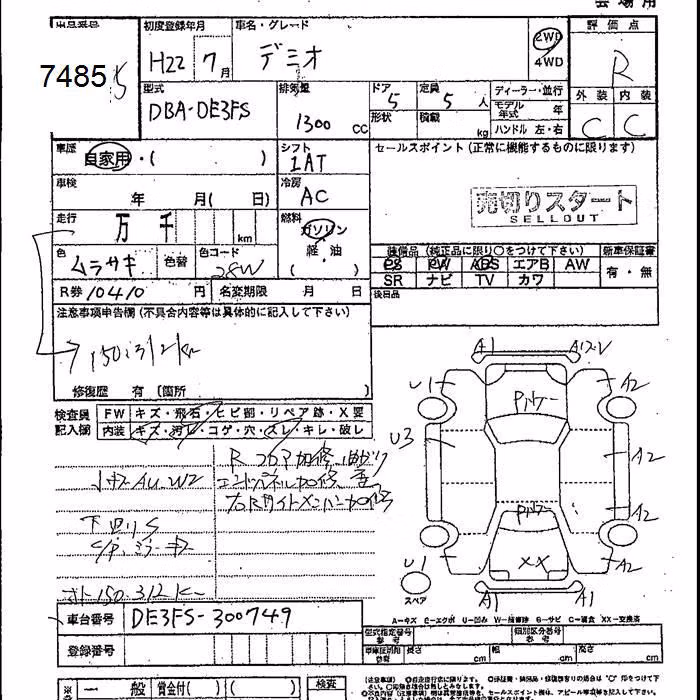 会場用
出品番号 初度登録年月 車名・グレード 評価点
7485 H22 7月 デミオ 2WD 4WD R
型式 排気量 ドア 定員 ディーラー・並行 外装 内装
DBA-DE3FS 1300 CC 5 5人 モデル年式 年 C C
形状 積載 kg ハンドル 左・右
車歴 自家用・( ) シフト 1AT セールスポイント(正常に機能するものに限ります)
車検 年 月( 日) 冷房 AC
売切りスタート
SELLOUT
走行 万 千 km 燃料 ガソリン 軽・油 ( )
色 ムラサキ 色替 色コード 28W
装備品(純正品に限り○をつけて下さい) 新車保証書
PS PW ABS エアB AW 有・無
SR ナビ TV カワ
R券 10410 円 名変期限 月 日 後日品
注意事項申告欄(不具合内容等は具体的に記入して下さい)
150312km
修復歴 有 〔箇所 〕
検査員記入欄 FW キズ・飛石・ヒビ割・リペア跡・X要
内装 キズ・汚レ・コゲ・穴・スレ・キレ・破レ
A1 A1
U1 A2
U3 A2
A2
U1 A2
A1 A1
XX
スペア
R フロア加修
AU.W2 エンドパネル加修
右Rサイドメンバー加修
下廻りS
メーター150.312km
A-キズ E-エクボ U-凹み W-補修跡 S-サビ C-腐食 XX-交換済
車台番号 DE3FS-300749
登録番号
型式指定番号 参考 類別区分番号 参考
長さ cm 幅 cm 高さ cm
一般 賞金付( )( ) 検査